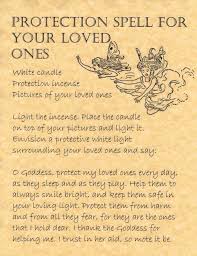 PROTECTION SPELL FOR
YOUR LOVED
ONES
White candle
Protection incense
Pictures of your loved ones
Light the incense. Place the candle
on top of your pictures and light it.
Envision a protective white light
surrounding your loved ones and say:
O Goddess, protect my loved ones every day,
as they sleep and as they play. Help them to
always smile bright, and keep them safe in
your loving light. Protect them from harm
and from all they fear, for they are the ones
that I hold dear. I thank the Goddess for
helping me. I trust in her aid, so mote it be.